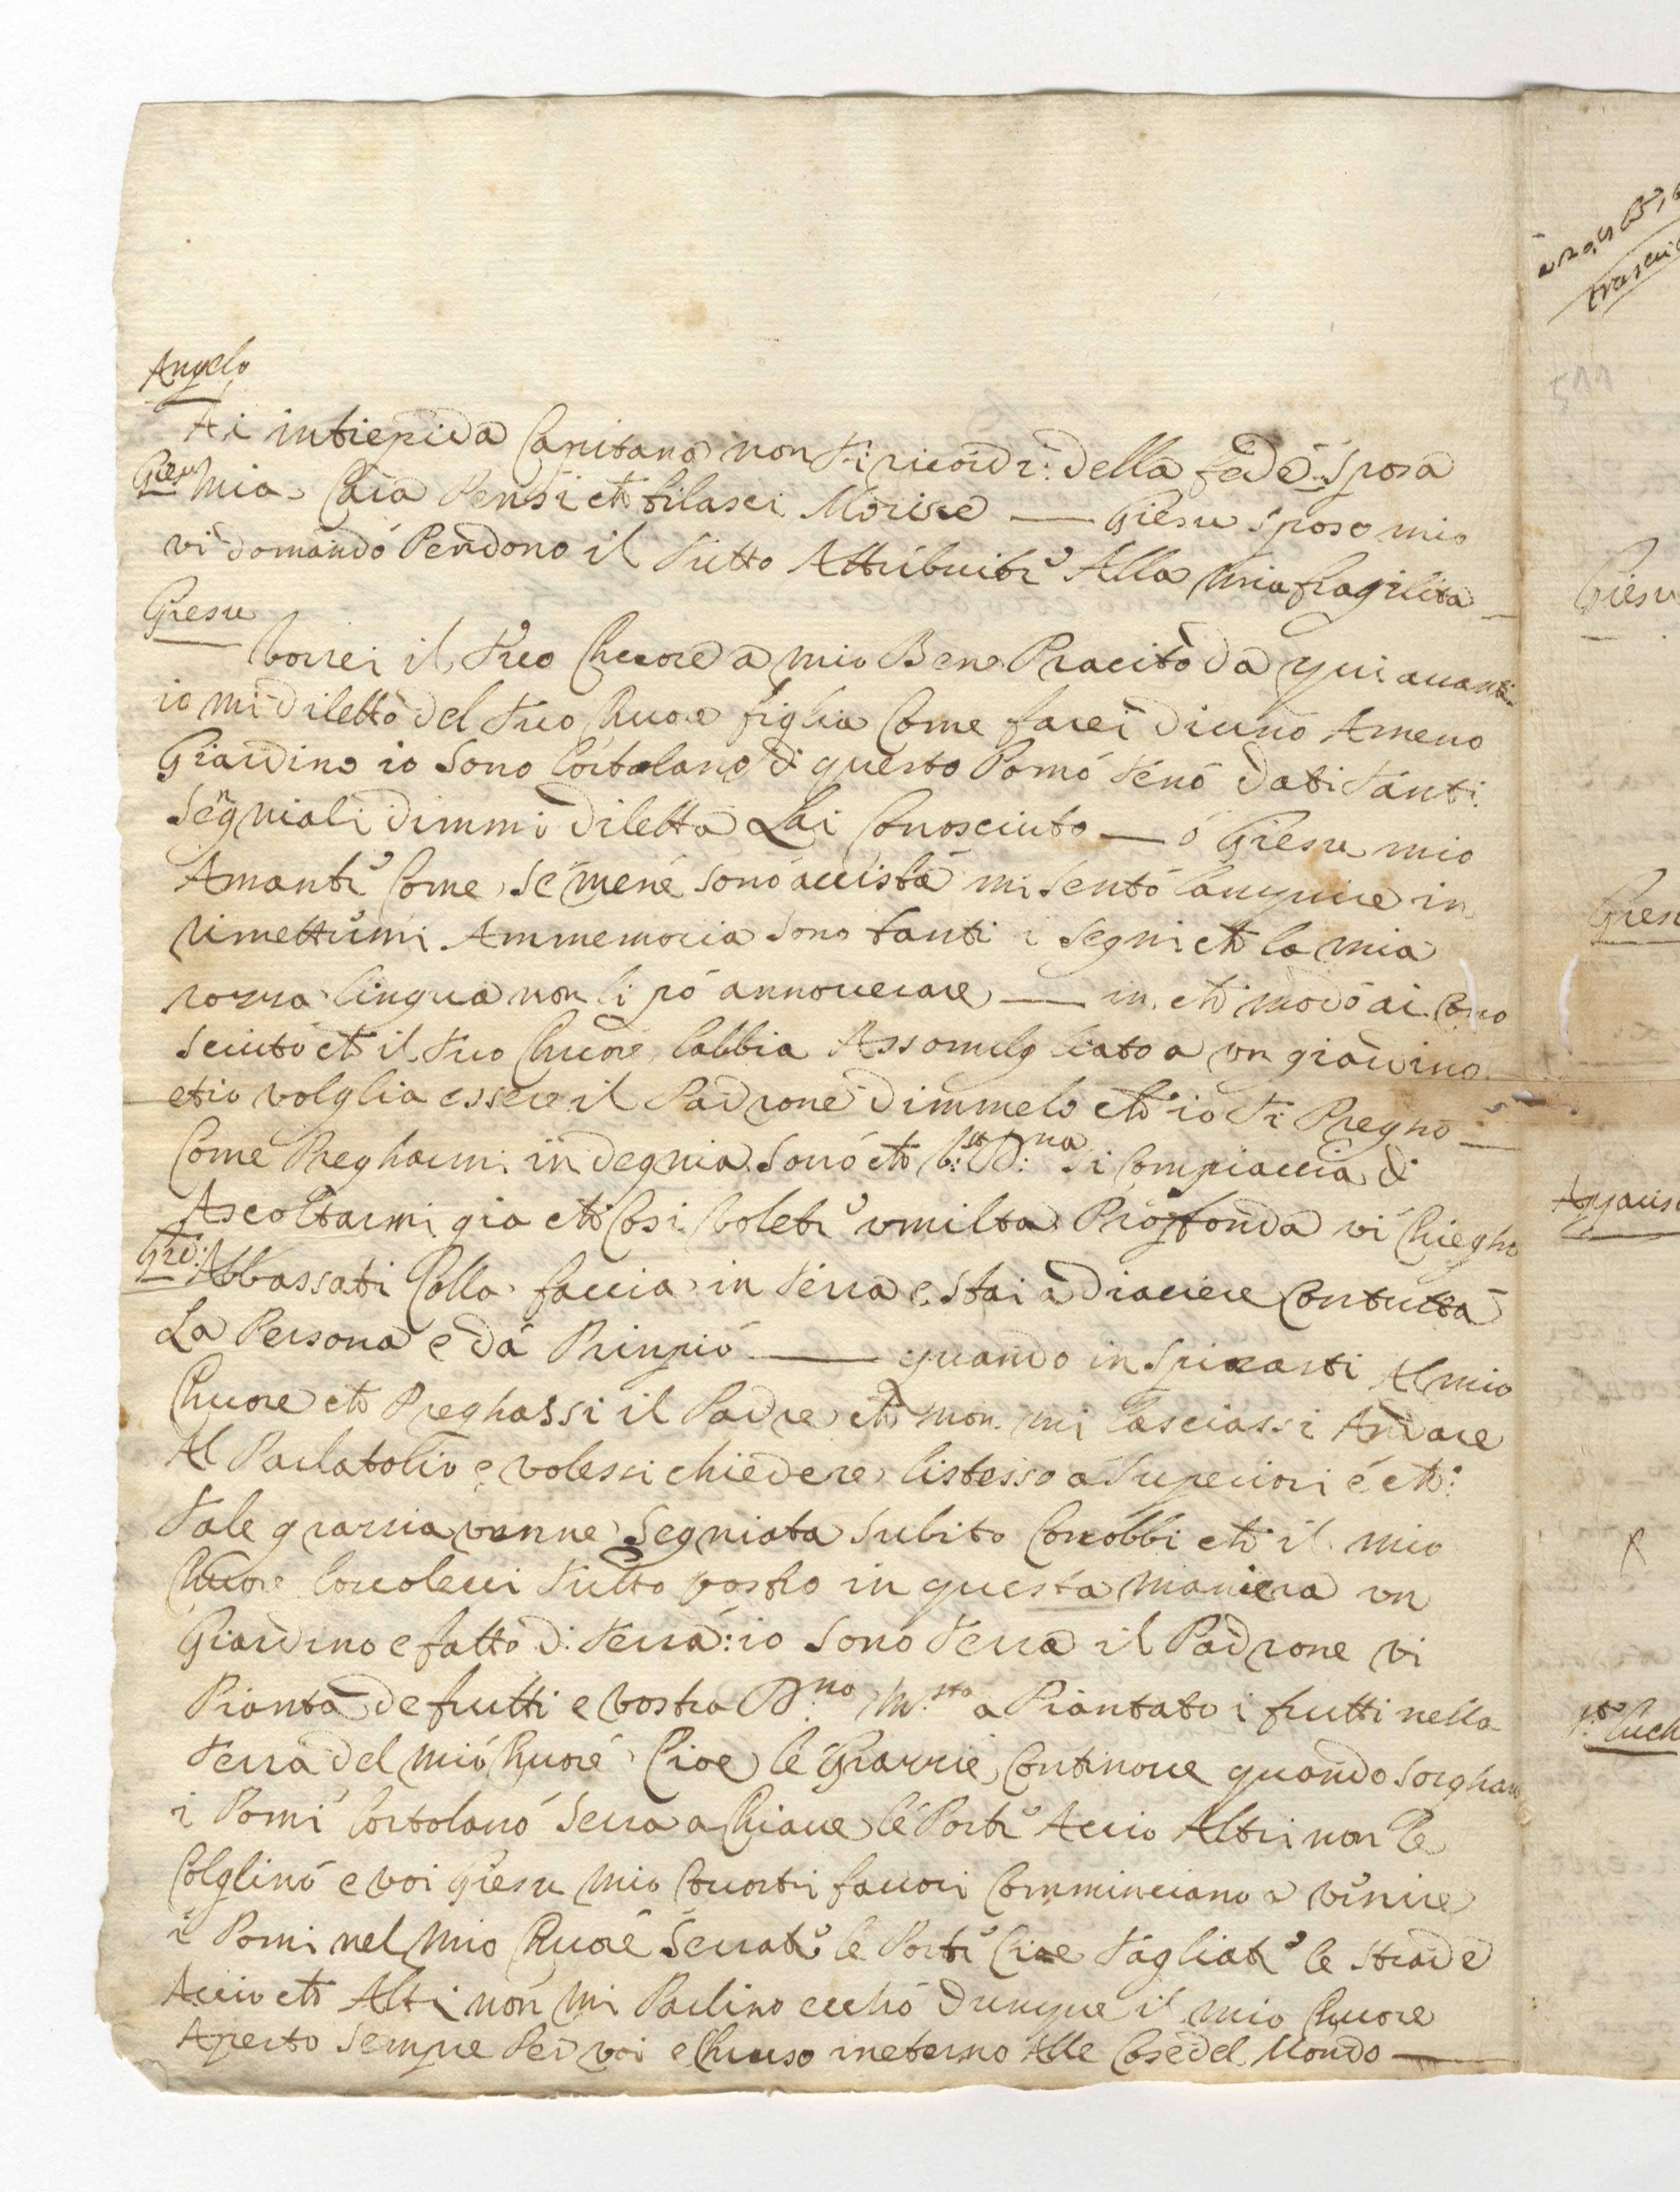 Angelo
Ai intiepida Capitana non ti ricordi: della fede Sposa
Giesu mia Cara Pensi che ti lasci Morire — Giesu Sposo mio
vi domando Perdono il tutto Attribuite Alla mia fragilita —
Giesu
Vorrei il tuo Chuore a mio Bene Placito da qui auanti
io mi diletto del tuo Chuore figlia Come farei di uno Ameno
Giardino io Sono Lortolano di questo Pomo te nó dati tanti
Sengniali dimmi diletta Lai Conosciuto — ó Giesu mio
Amante Come Se me né sono auista mi sento Languire in
rimettermi Ammemoria Sono tanti i Segni che la mia
rozza lingua non li pó annouerare — in che modo ai Cono
sciuto che il tuo Chuore labbia Assomilgliato a un giardino
e tio volglia essere il Padrone dimmelo che io ti Pregho —
Come Pregharmi indegnia Sono che V: D:na si Compiaccia di
Ascoltarmi gia che Cosi Volete umilta Profonda vi Chiegho
Gie: Abbassati Colla faccia in terra e Stai a diaciere Con tutta
La Persona e da Prinpió — quando inspirasti Al mio
Chuore che Preghassi il Padre che non mi lasciassi Andare
Al Parlatolio e volessi chiedere listesso a Superiori é che:
tale grazzia venne Segniata Subito Conobbi che il mio
Chuore Louoleui tutto vostro in questa maniera un
Giardino e fatto di terra: io Sono terra il Padrone vi
Pianta de frutti e Vostra D:na M:sta a Piantato i frutti nella
terra del mio Chuore Cioe le Grazzie Continoue quando Sorghano
i Pomi Lortolano Serra a Chiaue le Porte Accio Altri non le
Colglino e voi Giesu mio Co uostri fauori Comminciano a venire
i Pomi nel mio Chuore Serrate le Porte Cioe tagliate le strade
Accio che Altri non mi Parlino eccho dunque il mio Chuore
Aperto Sempre Per voi e Chiuso in eterno Alle Cose del Mondo —
511
Giesu
Giesu